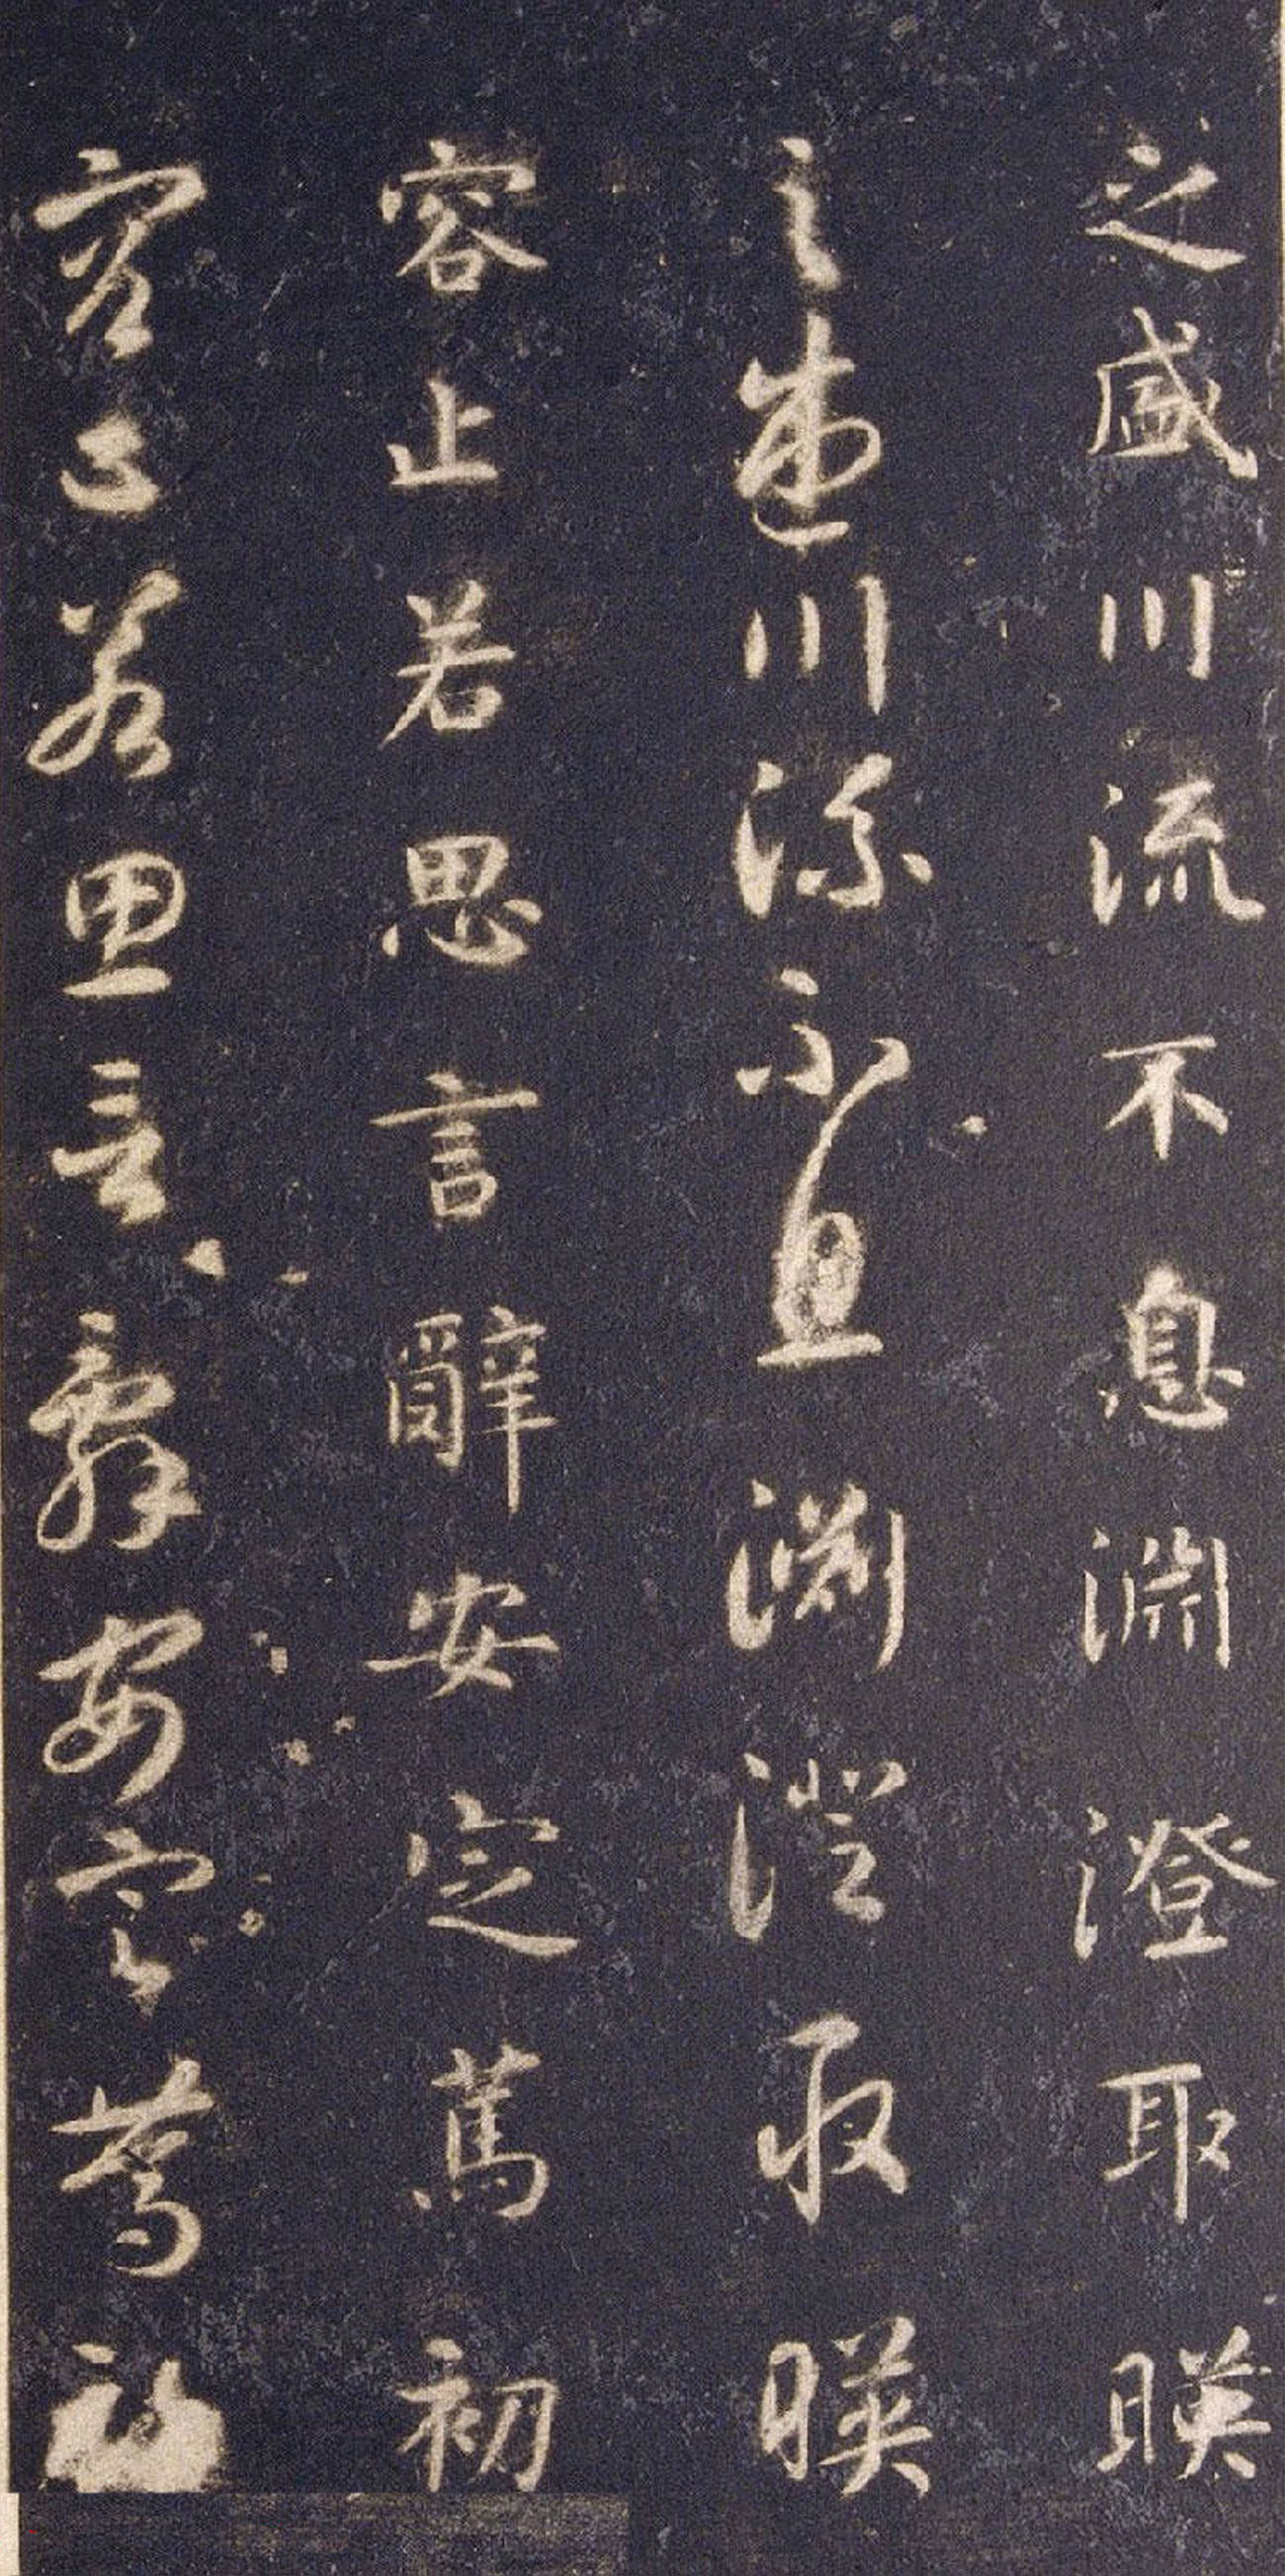 之盛川流不息淵澄取暎
之盛川流不息淵澄取暎
容止若思言辭安定篤初
容止若思言辭安定篤初